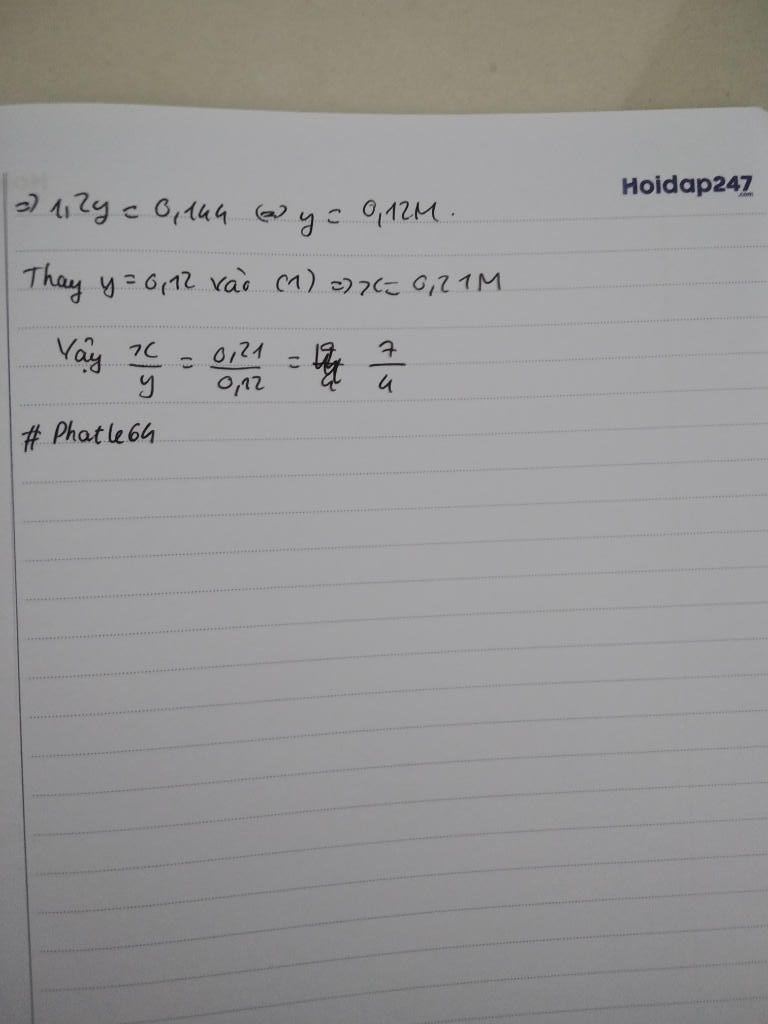 Hoidap247.com
=> 1,2y = 0,144 <=> y = 0,12M.
Thay y = 0,12 vào (1) => x = 0,21M
Vậy x/y = 0,21/0,12 = 7/4
# Phatle64